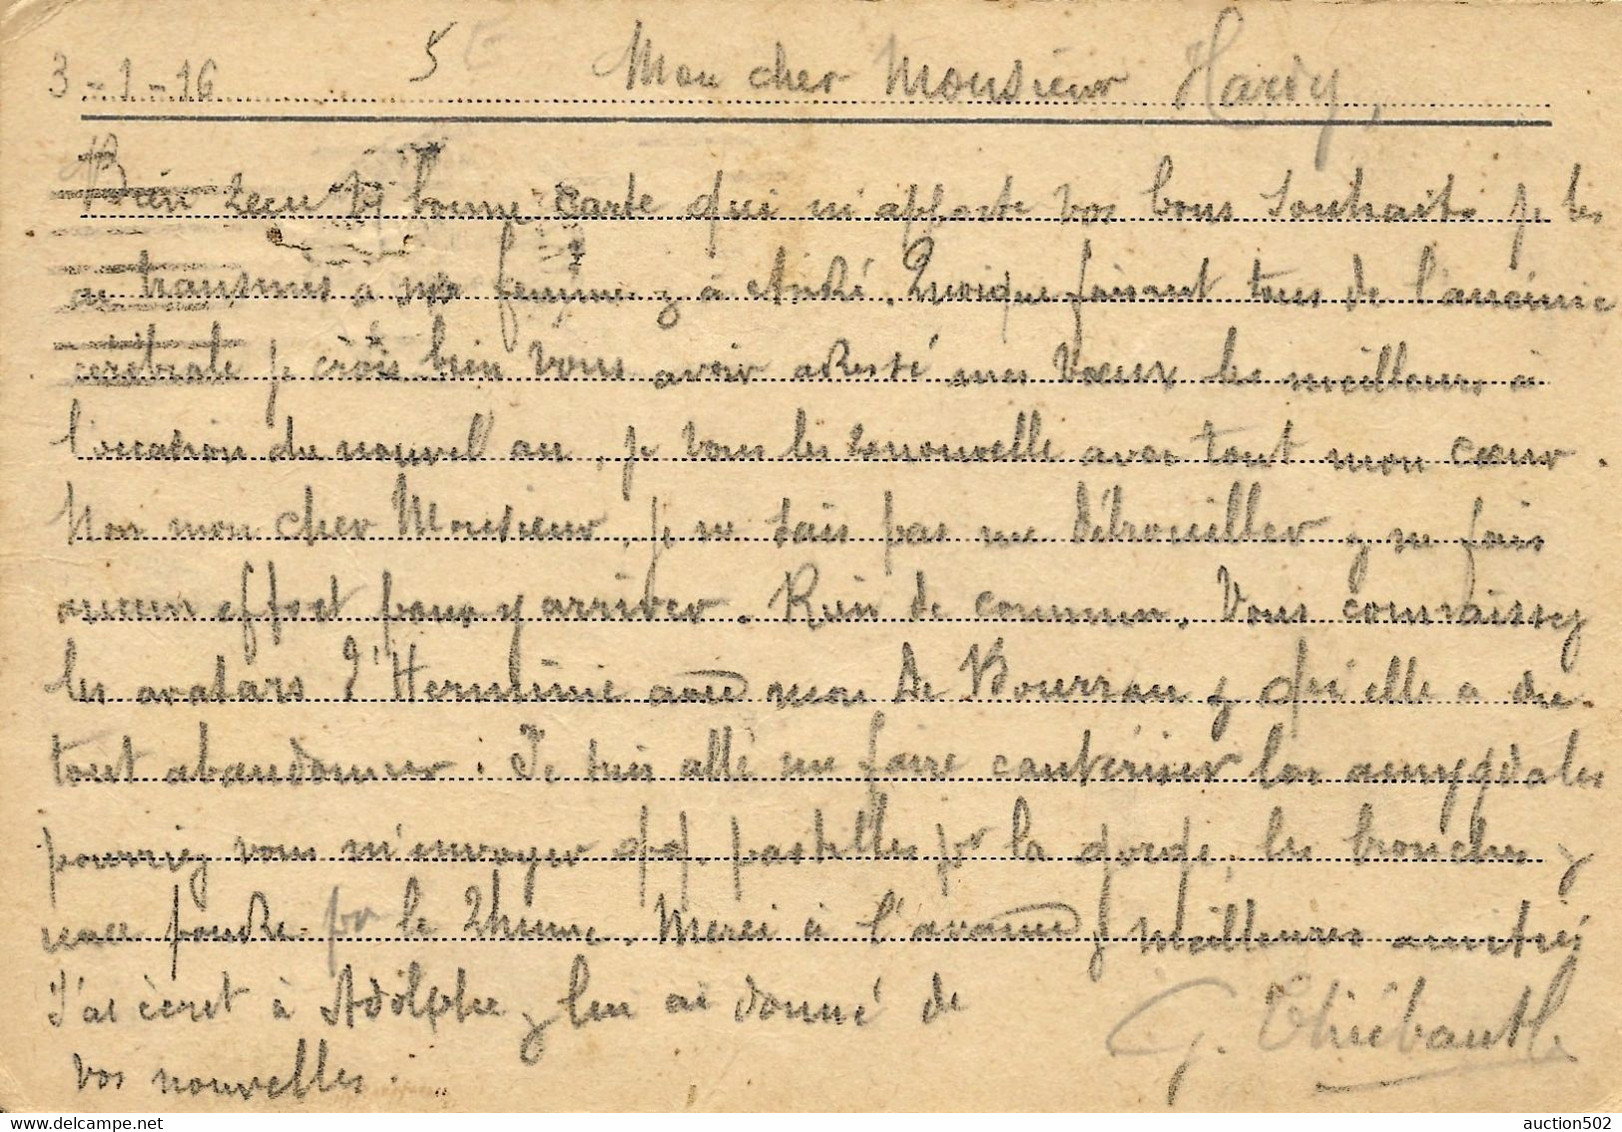 3-1-16 5 Mon cher Monsieur Hardy,
Bien reçu bonne carte qui m'apporte vos bons souhaits je les
ai transmis à ma femme & à André. Quoique faisant tous de l'anémie
cérébrale je crois bien vous avoir adressé mes vœux les meilleurs à
l'occasion du nouvel an, je vous les renouvelle avec tout mon cœur.
Non mon cher Monsieur, je ne sais pas me débrouiller & ne fais
aucun effort pour y arriver. Rien de commun. Vous connaissez
les avatars d'Hermine avec mon de Bourran & qu'elle a du
tout abandonner. Je suis allé me faire cautériser les amygdales
pourriez vous m'envoyer qq. pastilles pr la gorge, les bronches &
une poudre pr le rhume. Merci à l'avance & meilleures amitiés
J'ai écrit à Adolphe & lui ai donné de
G. Thiébault
vos nouvelles.
auction502